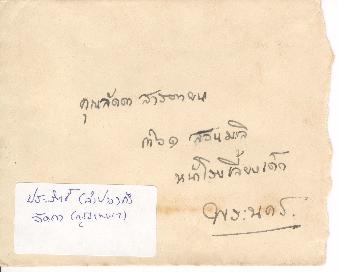 คุณลัดดา สารตายน
๓๖๑ สวนมะลิ
หน้าโรงเลี้ยงเด็ก
พระนคร.
ประสิทธิ์ (ลำปาง) ถึง
ลัดดา (กรุงเทพฯ)